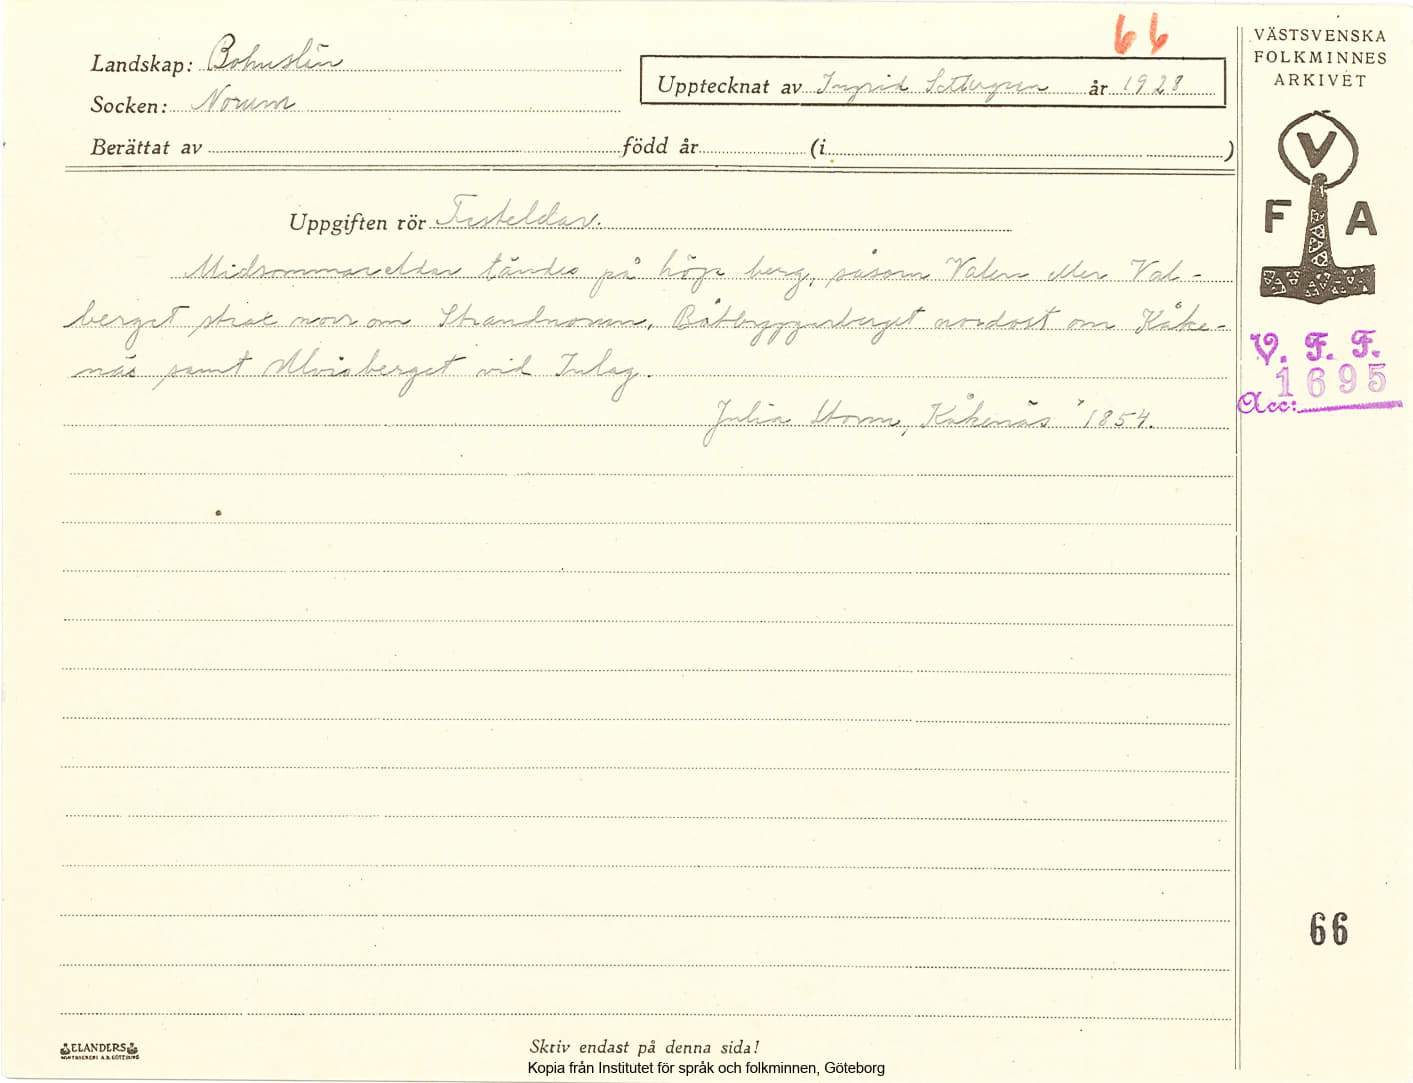 66
Landskap: Bohuslän
Upptecknat av Ingrid Settergren år 1928
Socken: Norum
Berättat av född år (i )
Uppgiften rör Festeldar.
Midsommareldar tändes på höga berg, såsom Valen eller Val-
berget strax norr om Strandnorum, Båtbyggareberget nordost om Kåke-
näs samt Ulvisberget vid Inlag.
Julia Storm, Kåkenäs * 1854.
VÄSTSVENSKA
FOLKMINNES
ARKIVET
V
F A
V. F. F.
1695
Acc:
66
ELANDERS
Skriv endast på denna sida!
Kopia från Institutet för språk och folkminnen, Göteborg